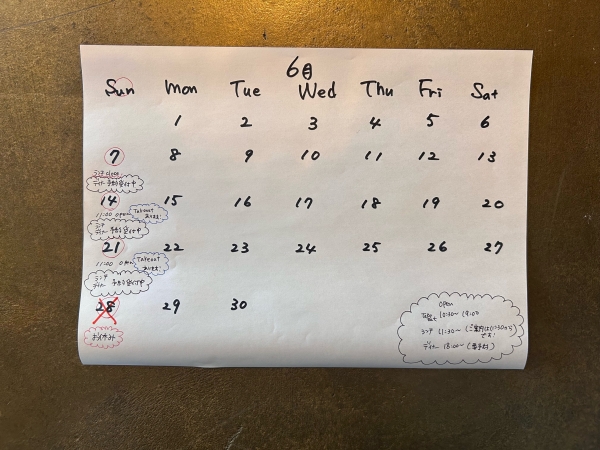 6月
Sun Mon Tue Wed Thu Fri Sat
1 2 3 4 5 6
7 8 9 10 11 12 13
ランチ close
ディナー 予約受付中
14 15 16 17 18 19 20
11:00 open Takeout
あります!
ランチ
ディナー 予約受付中
21 22 23 24 25 26 27
11:00 open Takeout
あります!
ランチ
ディナー 予約受付中
28 29 30
お休み
open
10:30~ 19:00
ランチ 11:30~
ディナー 18:00~ (要予約)